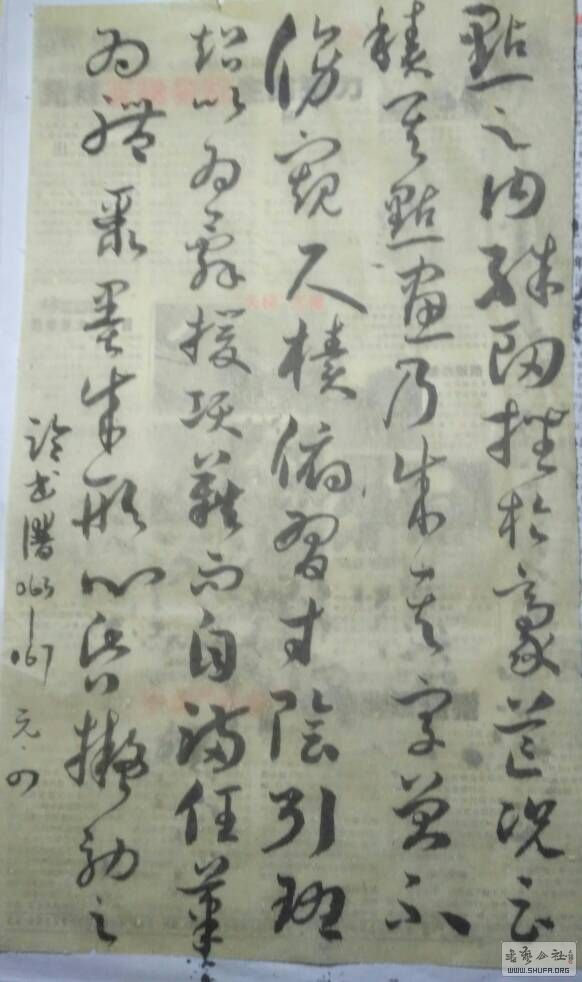 點之內殊衄挫於豪芒況云
積其點畫乃成其字曾不
傍窺尺牘俯習寸陰引班
超以為辭援項籍而自滿任筆
為體聚墨成形心昏擬效之
臨書譜063—067 元.四
書藝公社
WWW.SHUFA.ORG